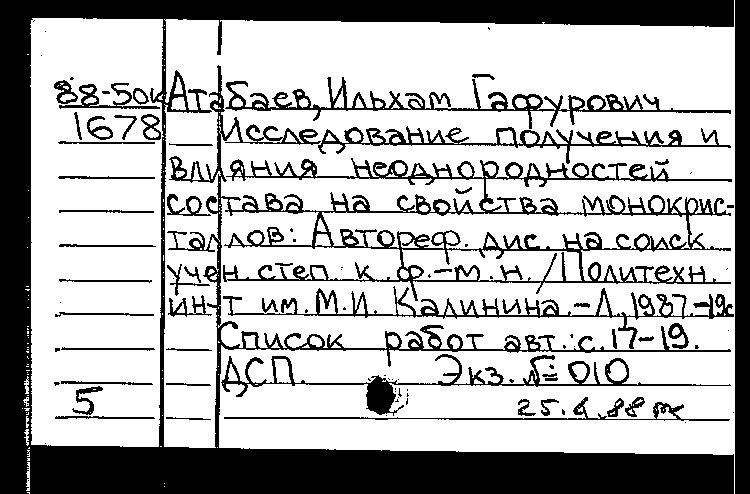 88-50к Атабаев, Ильхам Гафурович
1678 Исследование получения и
влияния неоднородностей
состава на свойства монокрис-
таллов: Автореф. дис. на соиск.
учен. степ. к. ф.-м. н. / Политехн.
ин-т им. М.И. Калинина. - Л., 1987. - 19с
Список работ авт.: с. 17-19.
ДСП. Экз. № 010
5
25.4.88